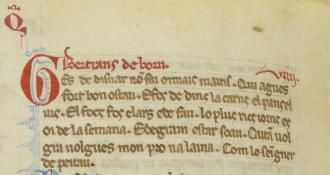 Bertrans de born. viiii.
GEs de disnar no fora oimais matis. Qui agues
fort bon ostau. E fos de dinz la carns el pans el
uis. El focs fos clars cde fau. Lo plus rics iorns es
oi de la semana. E degram estar soau. Cum
uolgues mon pro na laina. Com lo seigner
de peitau.